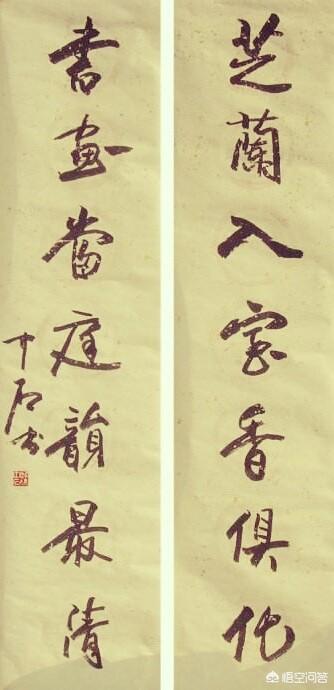 芝蘭入室香俱化
書畫當庭韻最清
介石书
悟空问答